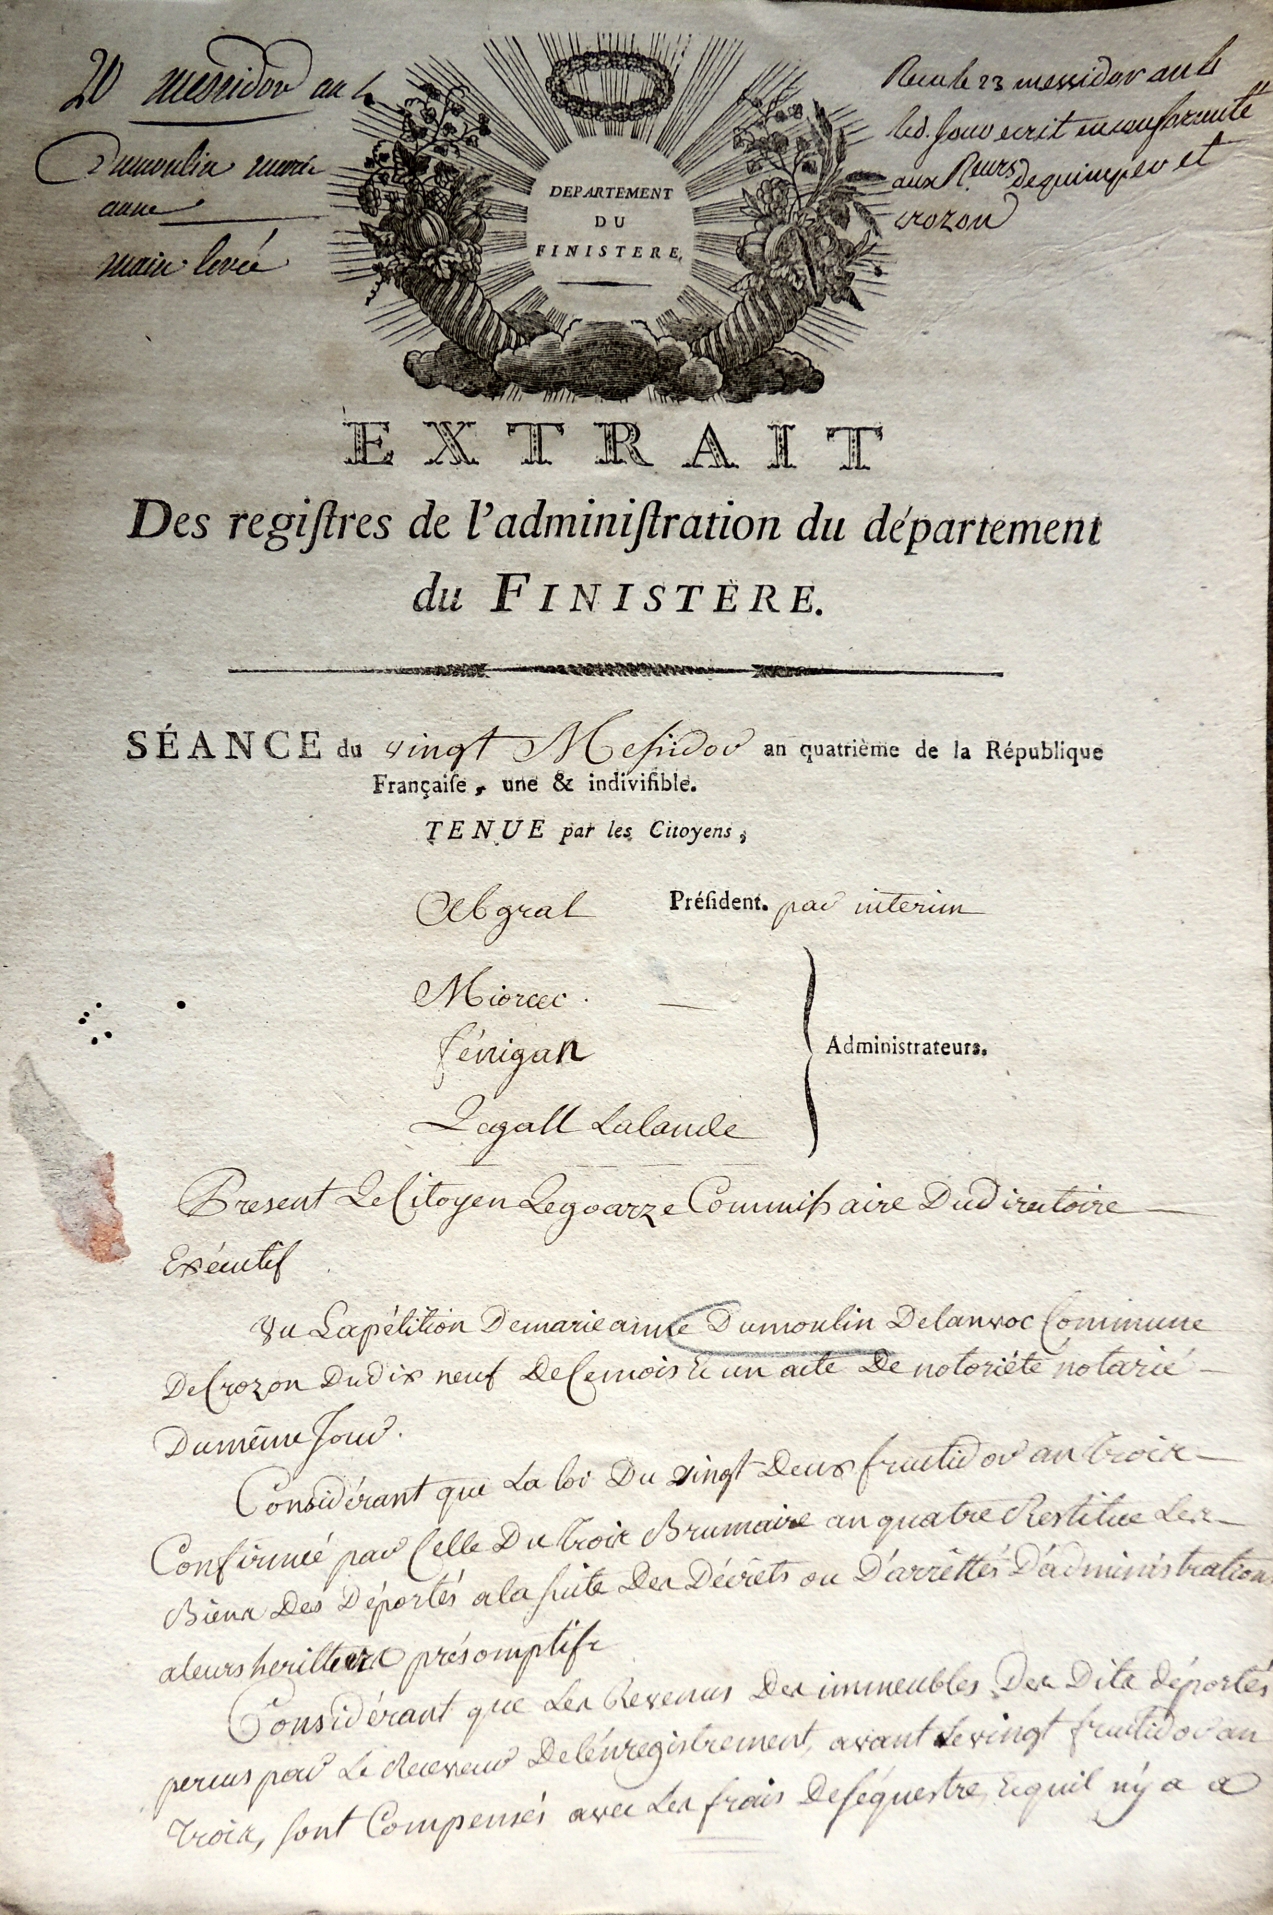 20 messidor an 4
Dumoulin marie
anne
main levée
Recu le 23 messidor an 4
led. jour ecrit en conformité
aux Reurs de quimper et
crozon
DEPARTEMENT
DU
FINISTERE,
EXTRAIT
Des regiſtres de l'adminiſtration du département
du FINISTÈRE.
SÉANCE du vingt Meſsidor an quatrième de la République
Françaiſe, une & indiviſible.
TENUE par les Citoyens,
Abgral Préſident. par interim
Miorcec.
fénigan
Legall Lalande
Administrateurs.
Present Le Citoyen Legoarze Commiſsaire Du directoire
Exécutif
Vu La pétition De marie anne Dumoulin De lanvoc Commune
De Crozon Du dix neuf De Ce mois Et un acte De notoriété notarié
Du même Jour.
Considérant que La loi Du vingt Deux fructidor an trois
Confirmée par Celle Du trois Brumaire an quatre Restitue Les
Biens Des Déportés a la suite Des Décrets ou D'arrêttés D'administration
a leurs heritiers présomptifs
Considérant que Les Revenus Des immeubles Des Dits déportés
percus par Le Receveur De l'enregistrement, avant Le vingt fructidor an
trois, sont Compensés avec Les frais De séquestre, Et quil n'y a a